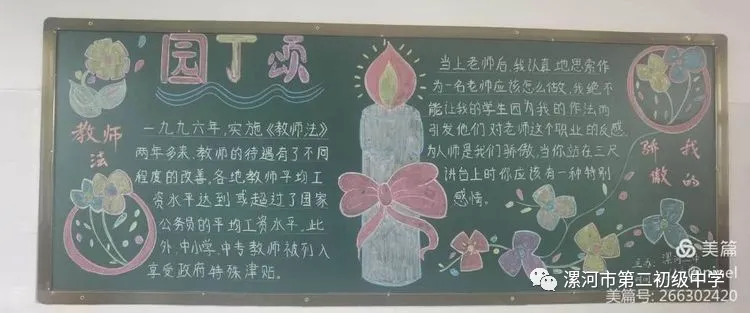 园丁颂
教师法
一九九六年,实施《教师法》
两年多来,教师的待遇有了不同
程度的改善。各地教师平均工
资水平达到或超过了国家
公务员的平均工资水平。此
外,中小学、中专教师被列入
享受政府特殊津贴。
当上老师后,我认真地思索作
为一名老师应该怎么做,我绝不
能让我的学生因为我的作法,而
引发他们对老师这个职业的反感,
为人师是我们骄傲,当你站在三尺
讲台上时你应该有一种特别
感情。
我的
骄傲
主办:漯河
美篇
漯河市第二初级中学
美篇号: 266302420